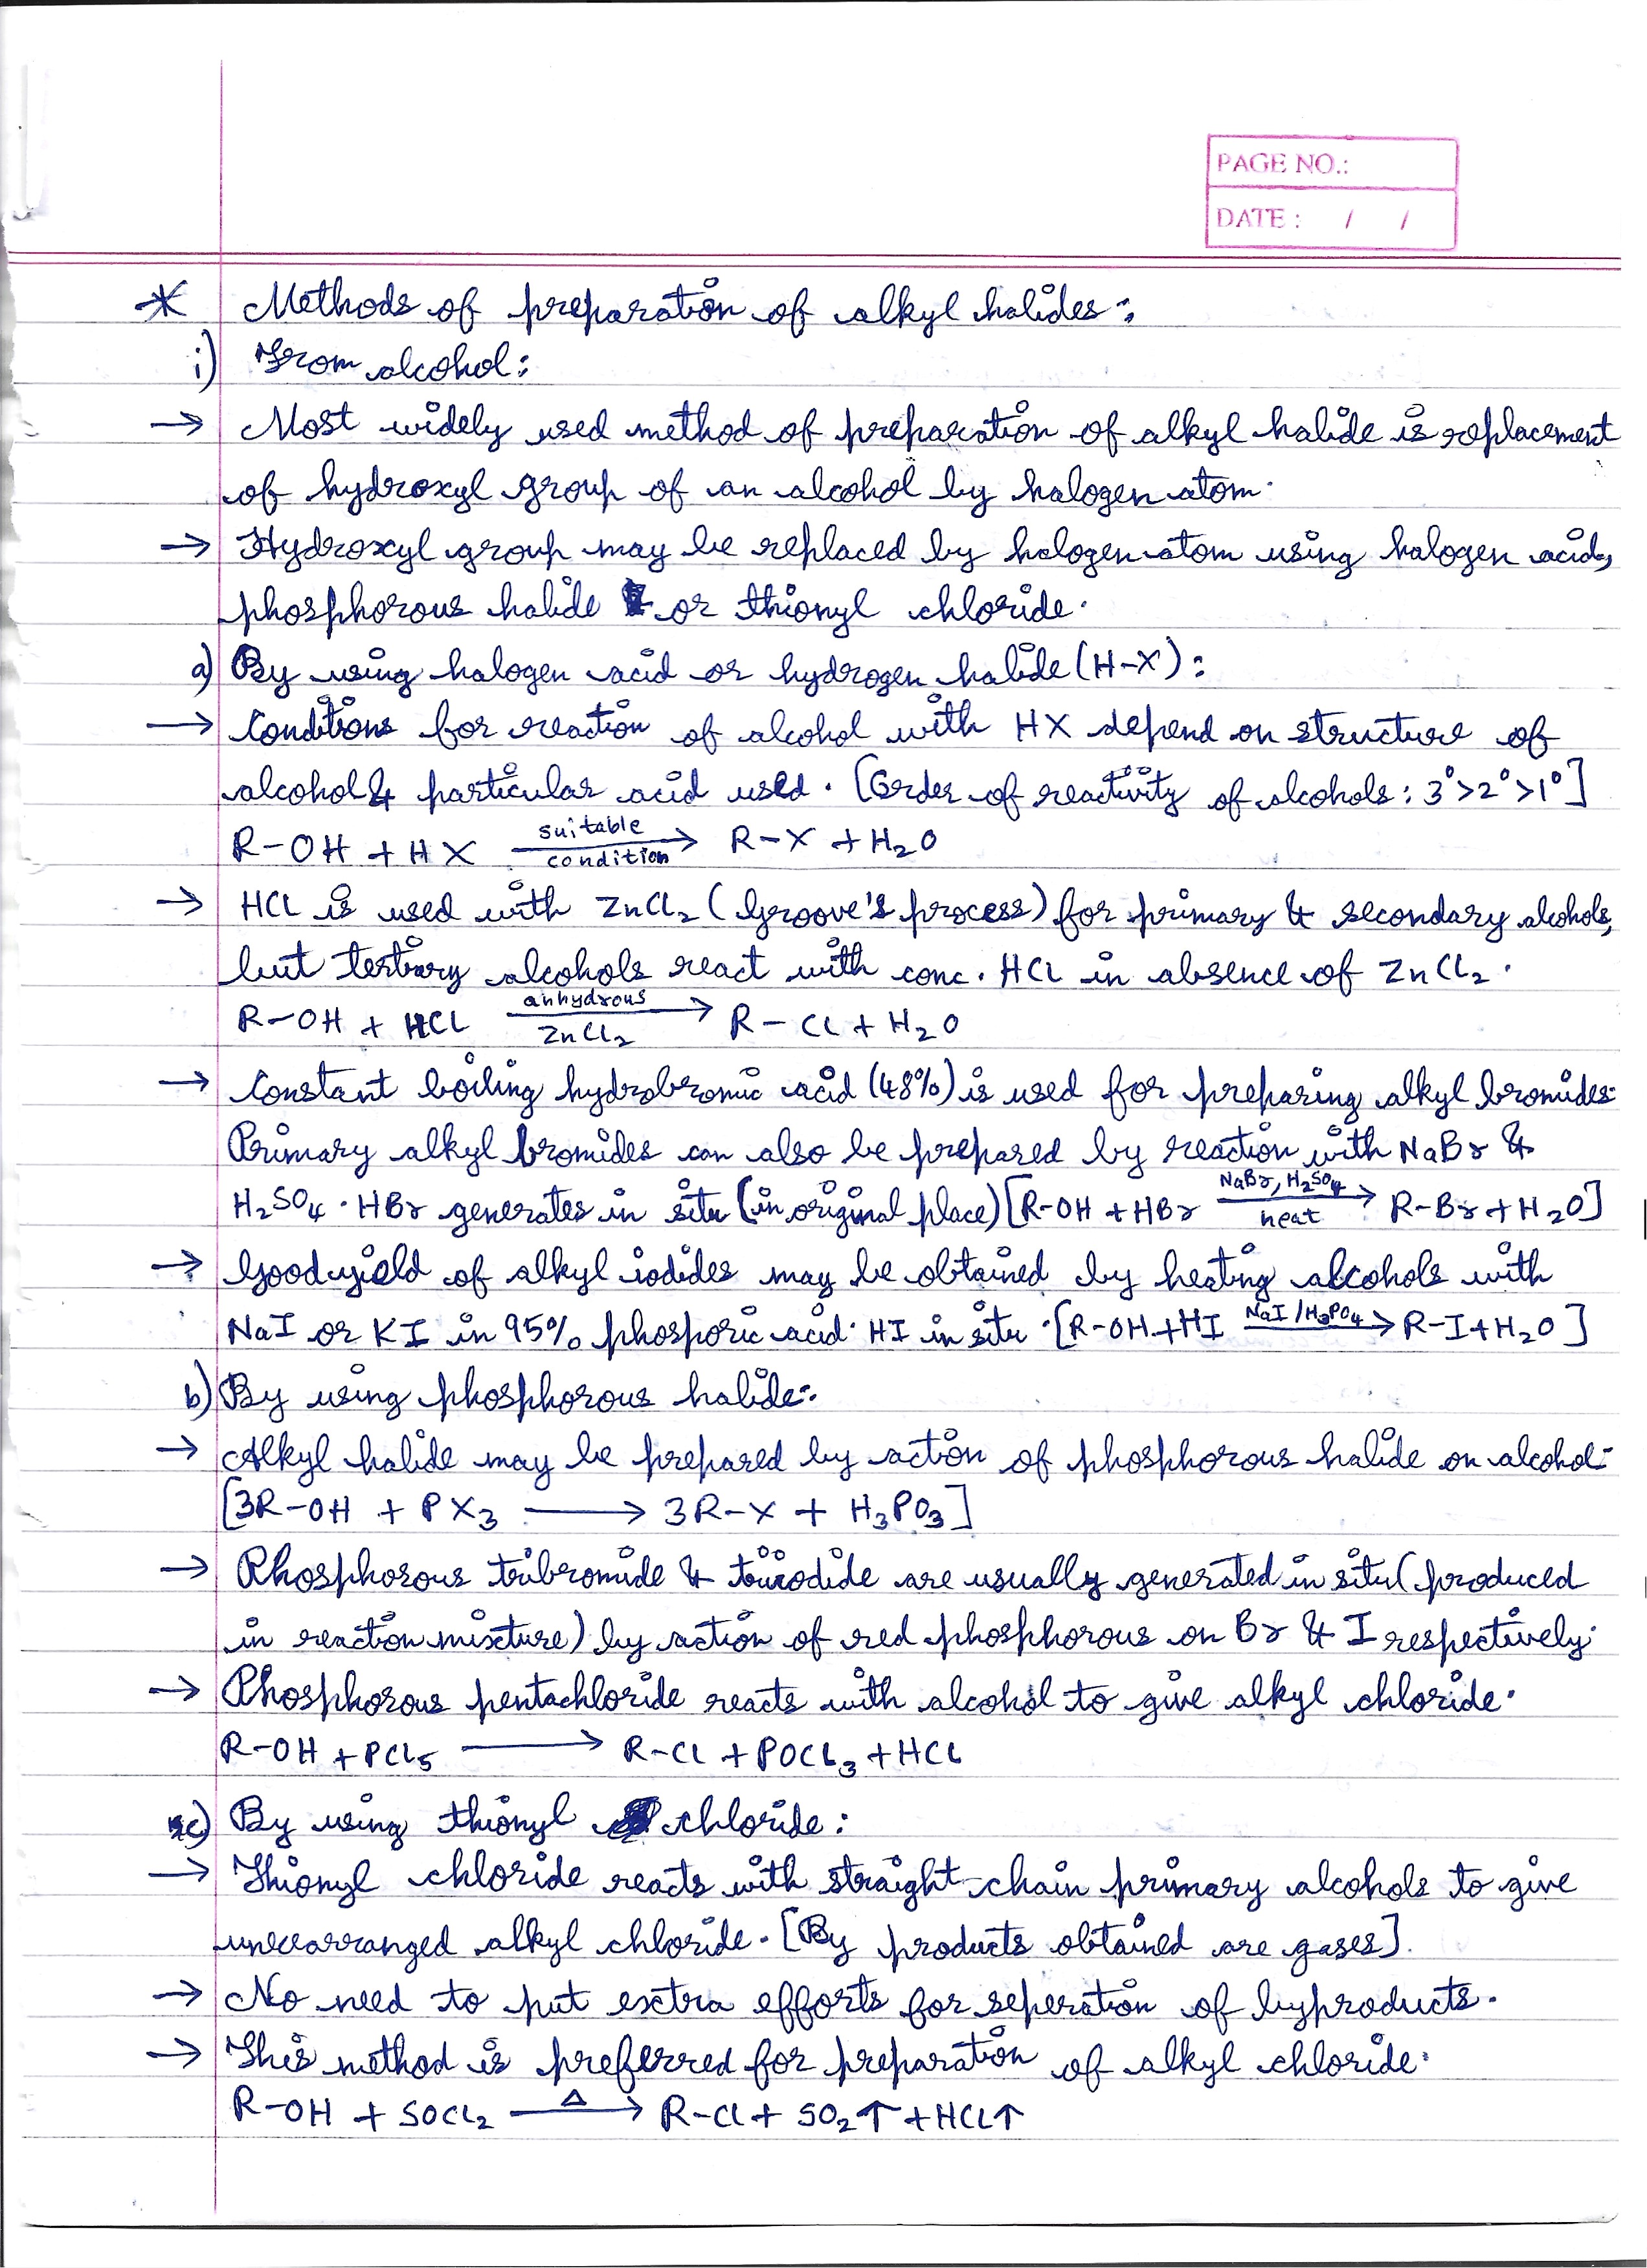 PAGE NO.:
DATE : / /
* Methods of preparation of alkyl halides:
i) From alcohol:
→ Most widely used method of preparation of alkyl halide is replacement
of hydroxyl group of an alcohol by halogen atom.
→ Hydroxyl group may be replaced by halogen atom using halogen acids,
phosphorous halide or thionyl chloride.
a) By using halogen acid or hydrogen halide (H-X):
→ Conditions for reaction of alcohol with HX depend on structure of
alcohol & particular acid used. [Order of reactivity of alcohols: 3°>2°>1°]
R-OH + HX suitable condition → R-X + H₂O
→ HCl is used with ZnCl₂ (Groove's process) for primary & secondary alcohols,
but tertiary alcohols react with conc. HCl in absence of ZnCl₂.
R-OH + HCl anhydrous ZnCl₂ → R-Cl + H₂O
→ Constant boiling hydrobromic acid (48%) is used for preparing alkyl bromides.
Primary alkyl bromides can also be prepared by reaction with NaBr &
H₂SO₄. HBr generates in situ (in original place) [R-OH + HBr NaBr, H₂SO₄ heat → R-Br + H₂O]
→ Good yield of alkyl iodides may be obtained by heating alcohols with
NaI or KI in 95% phosporic acid. HI in situ. [R-OH + HI NaI/H₃PO₄ → R-I + H₂O]
b) By using phosphorous halide:
→ Alkyl halide may be prepared by action of phosphorous halide on alcohol:
[3R-OH + PX₃ → 3R-X + H₃PO₃]
→ Phosphorous tribromide & triiodide are usually generated in situ (produced
in reaction mixture) by action of red phosphorous on Br & I respectively.
→ Phosphorous pentachloride reacts with alcohol to give alkyl chloride.
R-OH + PCl₅ → R-Cl + POCl₃ + HCl
c) By using thionyl chloride:
→ Thionyl chloride reacts with straight chain primary alcohols to give
unrearranged alkyl chloride. [By products obtained are gases].
→ No need to put extra efforts for seperation of byproducts.
→ This method is preferred for preparation of alkyl chloride.
R-OH + SOCl₂ Δ → R-Cl + SO₂↑ + HCl↑